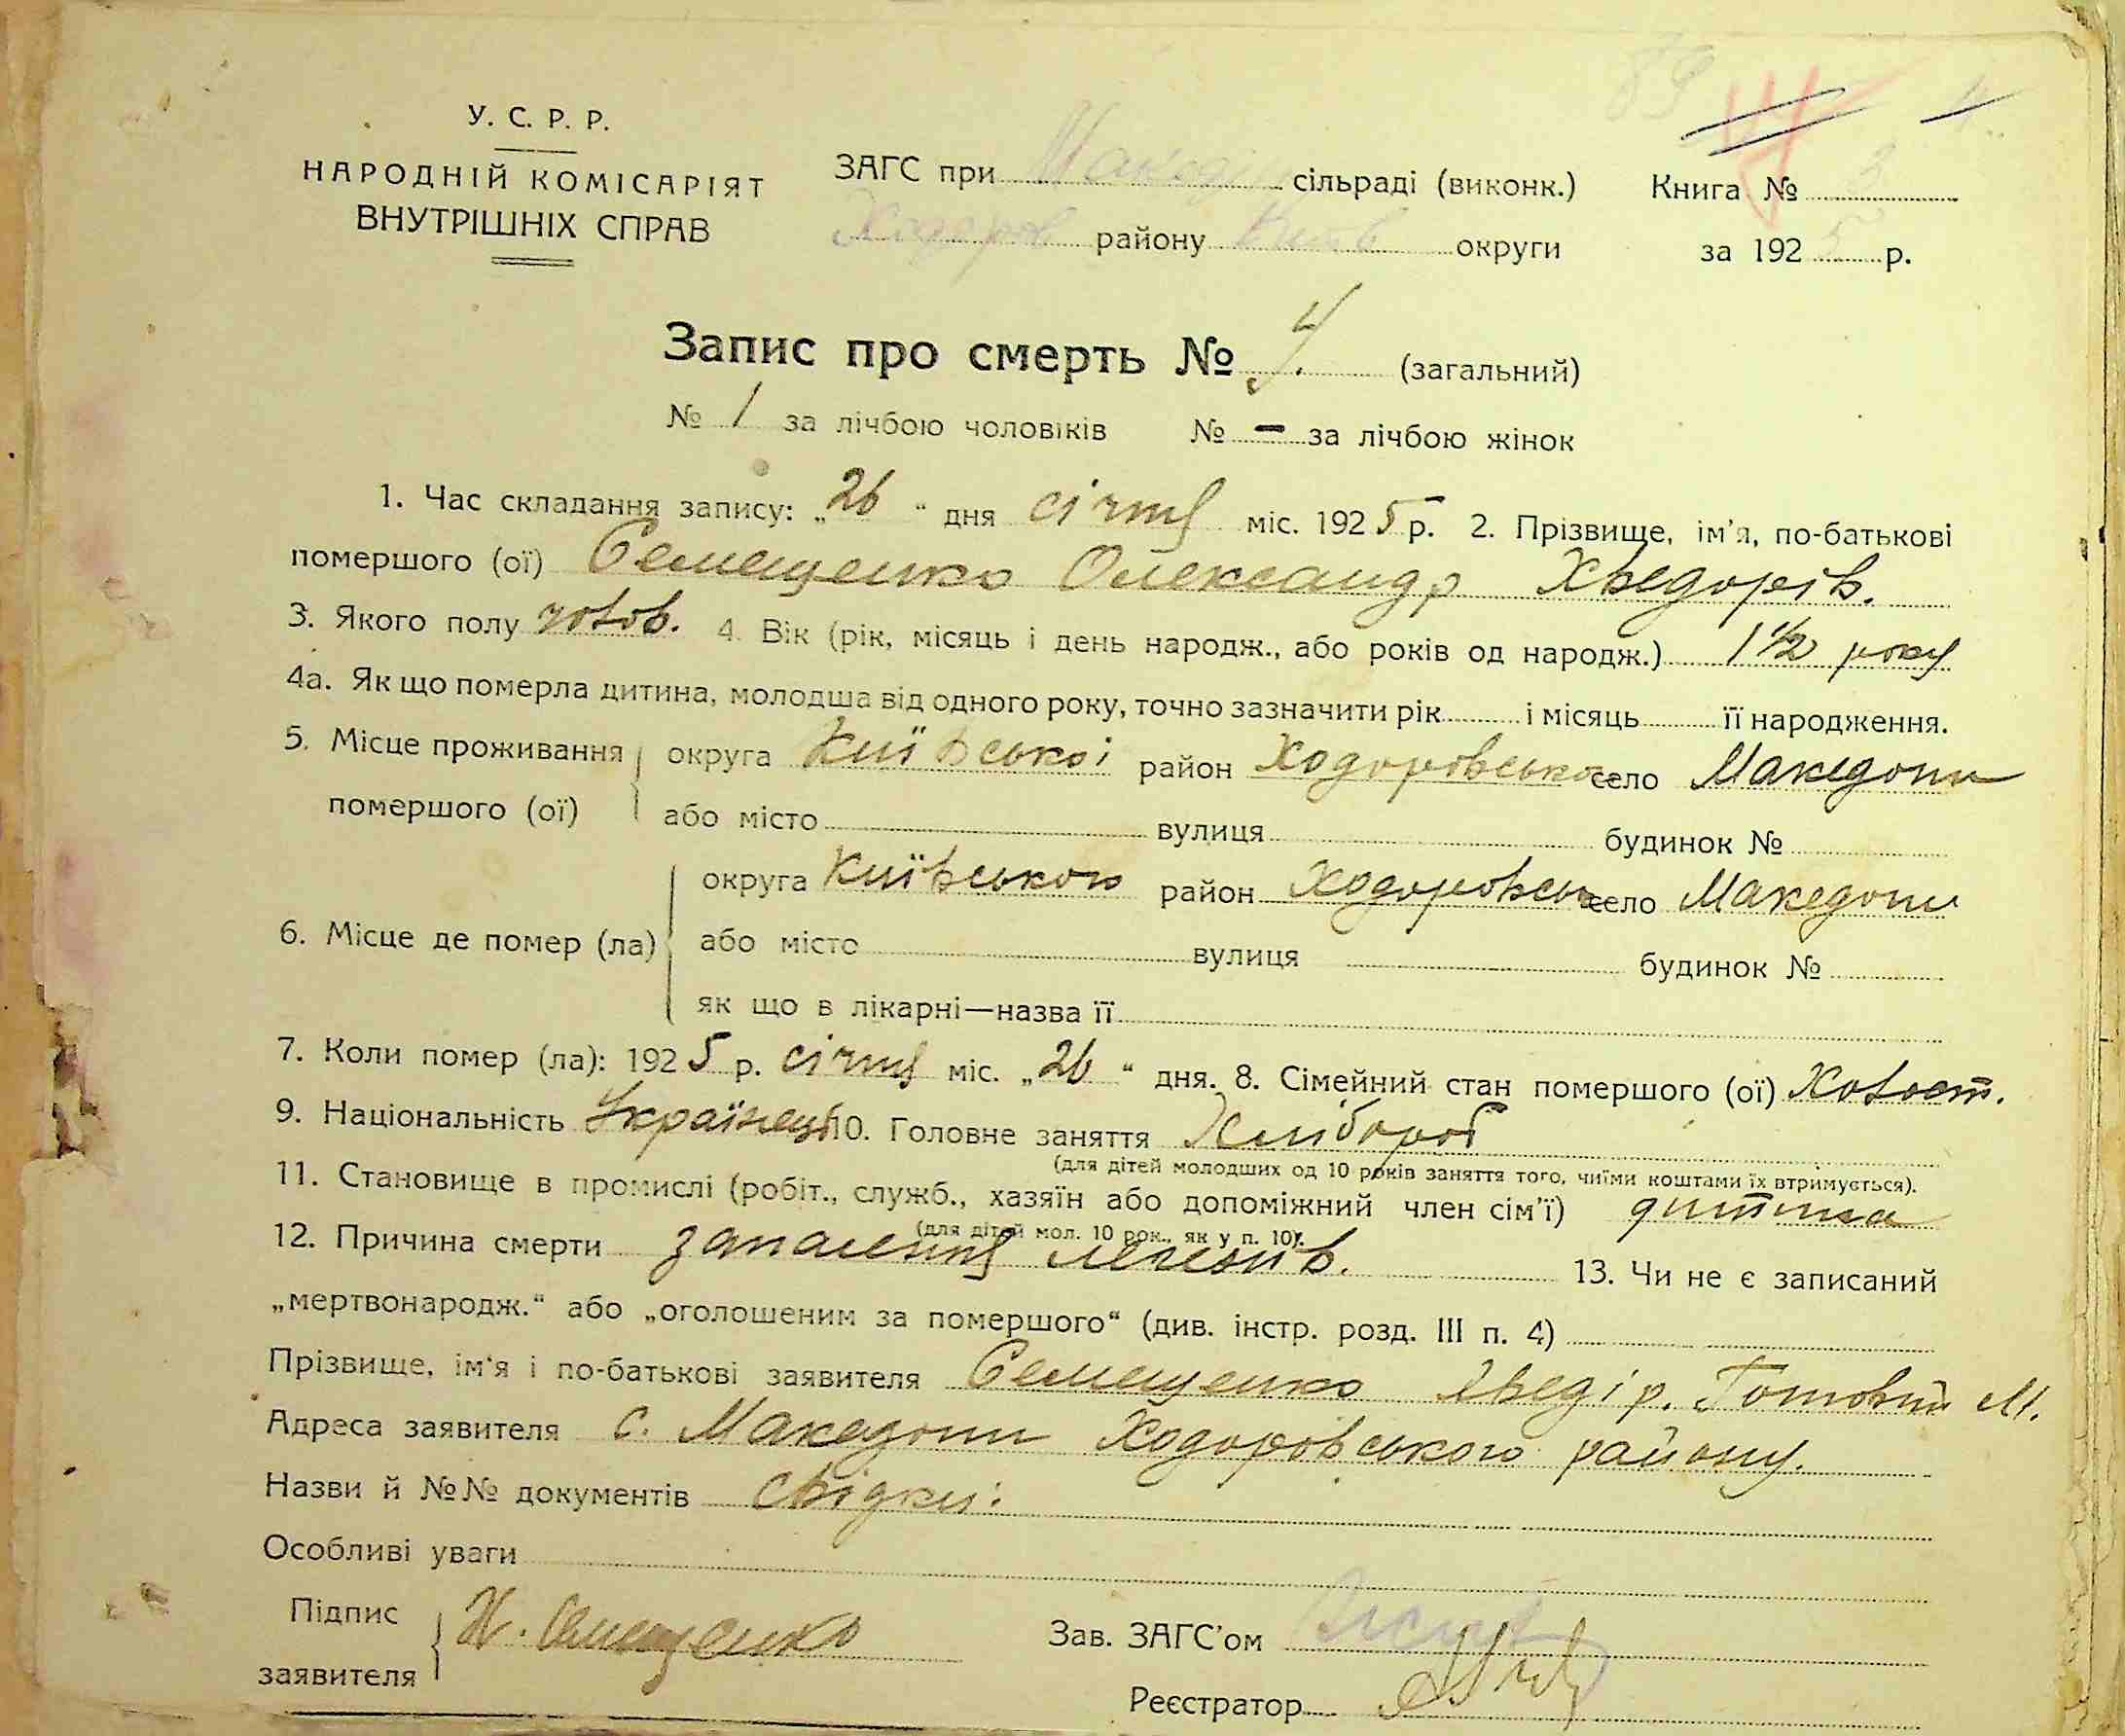 У. С. Р. Р.
НАРОДНІЙ КОМІСАРІЯТ
ВНУТРІШНІХ СПРАВ
ЗАГС при сільраді (виконк.)
Ходоров району Київ округи
Книга № 3
за 1925 р.
Запис про смерть № 4. (загальний)
№ 1 за лічбою чоловіків № – за лічбою жінок
1. Час складання запису: „26“ дня січня міс. 1925 р. 2. Прізвище, ім'я, по-батькові
помершого (ої) Семещенко Олександр Хведорів.
3. Якого полу чолов. 4. Вік (рік, місяць і день народж., або років од народж.) 1 1/2 року
4а. Як що померла дитина, молодша від одного року, точно зазначити рік і місяць її народження.
5. Місце проживання округа Київської район Ходоровсько село Македони
помершого (ої) або місто вулиця будинок №
округа Київською район Ходоровськ село Македони
6. Місце де помер (ла) або місто вулиця будинок №
як що в лікарні—назва її
7. Коли помер (ла): 1925 р. січня міс. „26“ дня. 8. Сімейний стан помершого (ої) Холост.
9. Національність Українець 10. Головне заняття Хлібороб
(для дітей молодших од 10 років заняття того, чиїми коштами їх втримується).
11. Становище в промислі (робіт., служб., хазяїн або допоміжний член сім'ї) дитина
(для дітей мол. 10 рок., як у п. 10).
12. Причина смерти запалення легенів. 13. Чи не є записаний
„мертвонародж.“ або „оголошеним за помершого“ (див. інстр. розд. III п. 4)
Прізвище, ім'я і по-батькові заявителя Семещенко Хведір. М.
Адреса заявителя с. Македони Ходоровського району.
Назви й №№ документів Свідки:
Особливі уваги
Підпис
заявителя Семещенко
Зав. ЗАГС'ом
Реєстратор